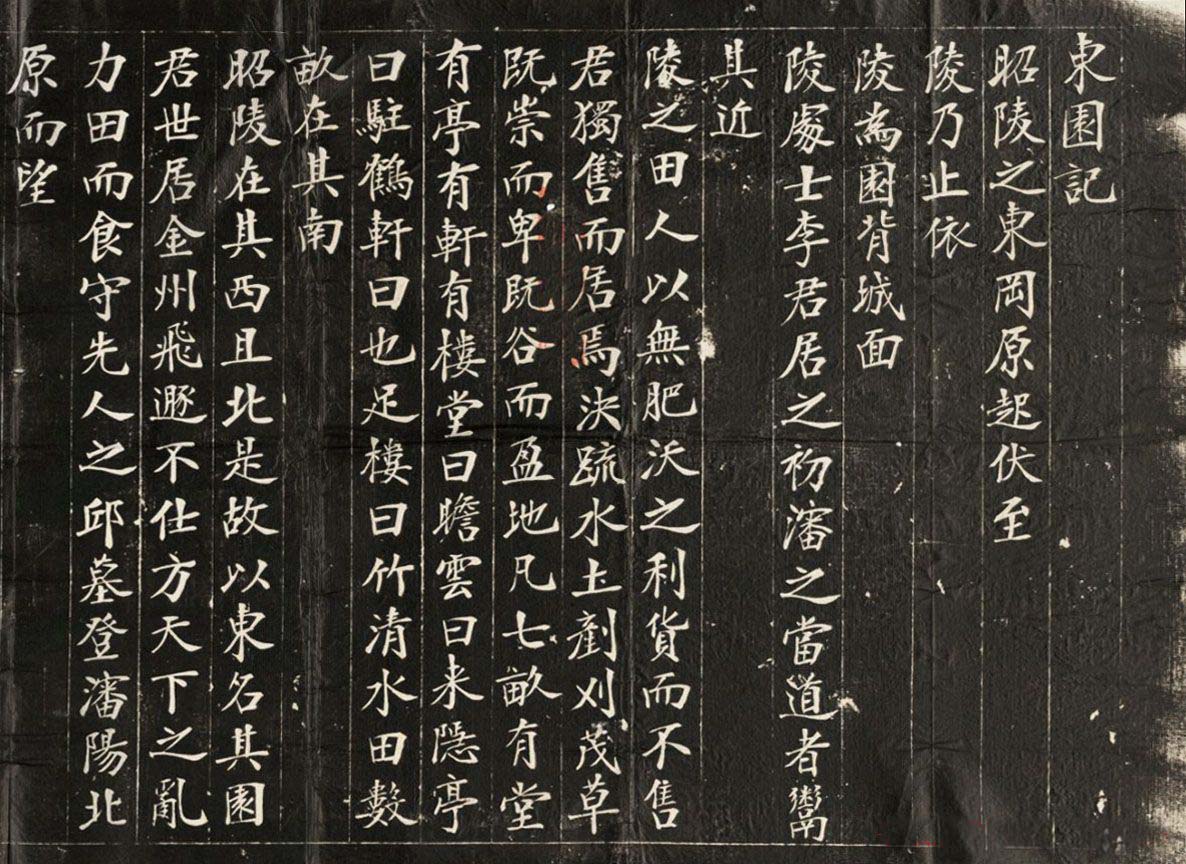 東園記
昭陵之東岡原起伏至
陵乃止依
陵為園背城面
陵處士李君居之初瀋之當道者鬻
其近
陵之田人以無肥沃之利貨而不售
君獨售而居焉決疏水土剷刈茂草
既崇而卑既谷而盈地凡七畝有堂
有亭有軒有樓堂曰瞻雲曰来隠亭
曰駐鶴軒曰也足樓曰竹清水田數
畝在其南
昭陵在其西且北是故以東名其園
君世居金州飛遯不仕方天下之亂
力田而食守先人之邱墓登瀋陽北
原而望